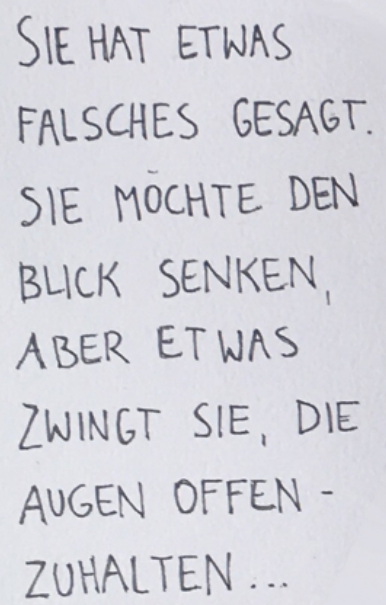 SIE HAT ETWAS
FALSCHES GESAGT.
SIE MÖCHTE DEN
BLICK SENKEN,
ABER ETWAS
ZWINGT SIE, DIE
AUGEN OFFEN -
ZUHALTEN...